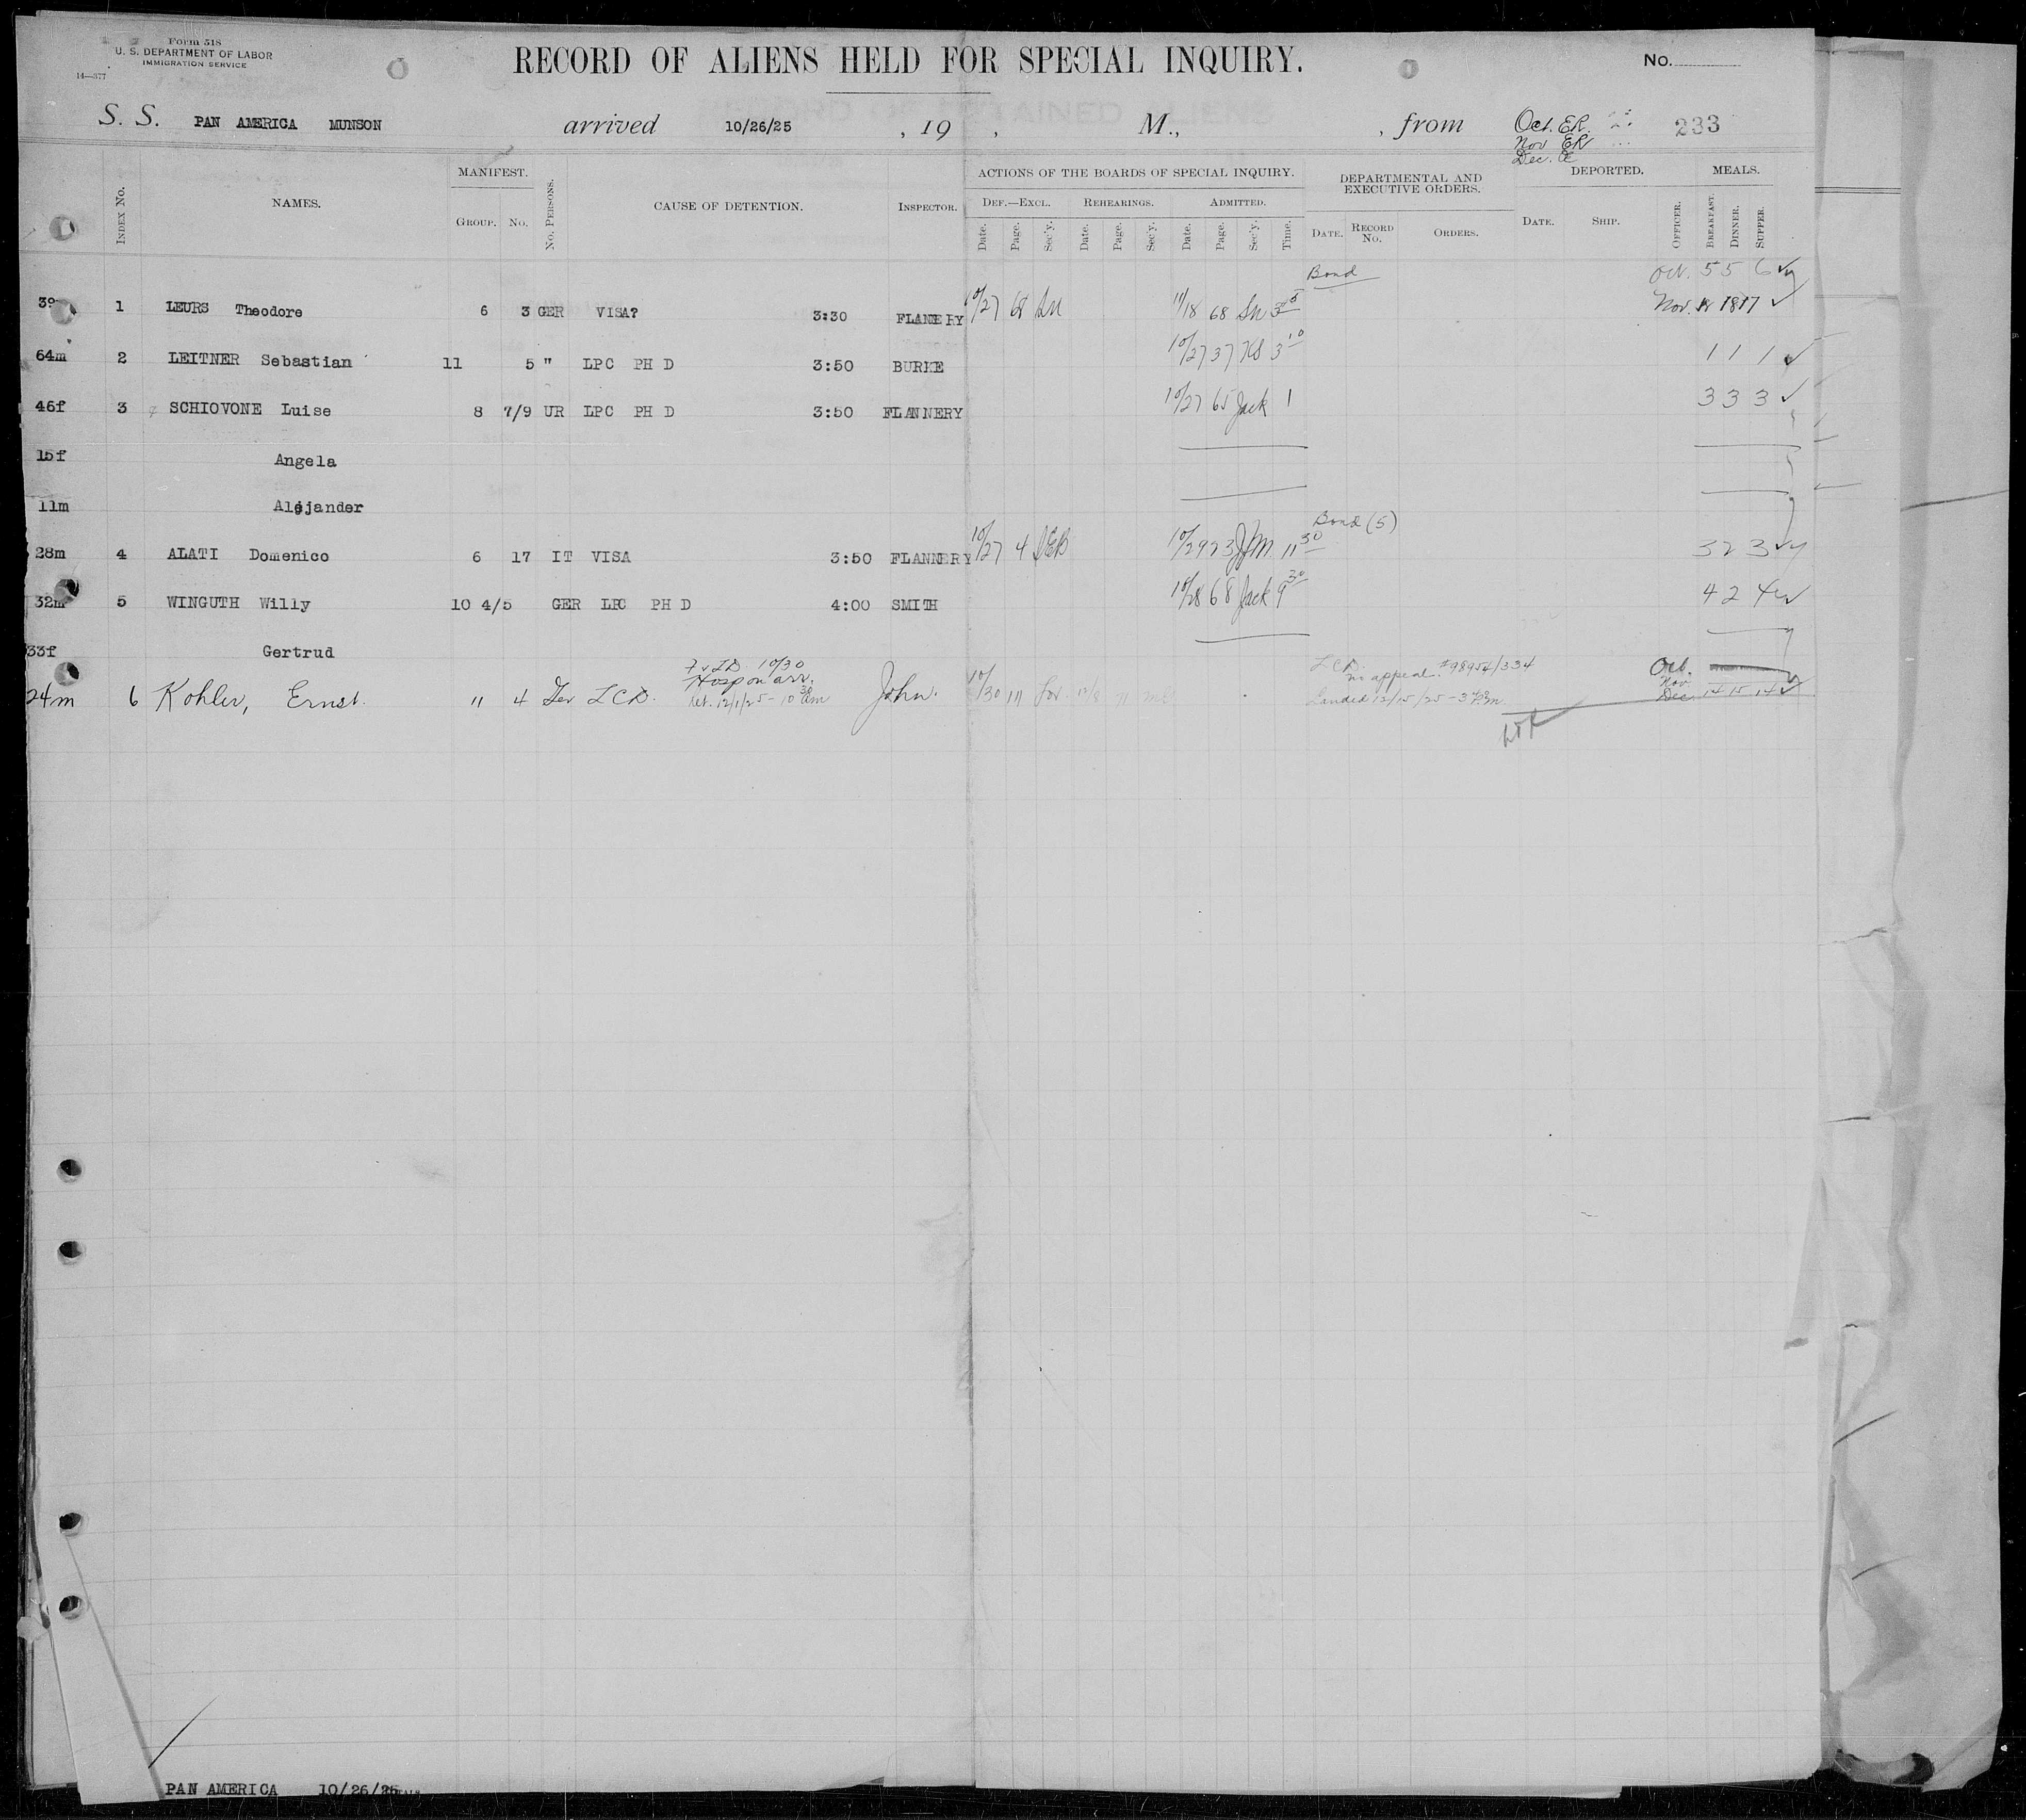 Form 518
U. S. DEPARTMENT OF LABOR
IMMIGRATION SERVICE
14—377
RECORD OF ALIENS HELD FOR SPECIAL INQUIRY.
No.
S. S. PAN AMERICA MUNSON arrived 10/26/25 , 19 , M., , from Oct. ER. 233
Nov ER
Dec.
INDEX No. NAMES. MANIFEST. GROUP. No. No. PERSONS. CAUSE OF DETENTION. INSPECTOR.
ACTIONS OF THE BOARDS OF SPECIAL INQUIRY. DEPARTMENTAL AND EXECUTIVE ORDERS. DEPORTED. MEALS.
DEF.—EXCL. REHEARINGS. ADMITTED.
Date. Page. Sec'y. Date. Page. Sec'y. Date. Page. Sec'y. Time. DATE. RECORD No. ORDERS. DATE. SHIP. OFFICER. BREAKFAST. DINNER. SUPPER.
Bond Oct. 5 5 6
39 1 LEURS Theodore 6 3 GER VISA? 3:30 FLANNERY 10/27 68 11/18 68 Nov. 18 18 17
64m 2 LEITNER Sebastian 11 5 " LPC PH D 3:50 BURKE 10/27 37 3 10 1 1 1
46f 3 SCHIOVONE Luise 8 7/9 UR LPC PH D 3:50 FLANNERY 10/27 65 Jack 1 3 3 3
15f Angela
11m Alejander
Bond (5)
28m 4 ALATI Domenico 6 17 IT VISA 3:50 FLANNERY 10/27 4 10/29 23 11 30 3 2 3
32m 5 WINGUTH Willy 10 4/5 GER LPC PH D 4:00 SMITH 10/28 68 Jack 9 30 4 2 4
33f Gertrud
10/30
Hosp on arr.
24m 6 Kohler, Ernst. 11 4 Ger LCD. ret. 12/1/25 - 10 30 am John. 10/30 111 12/8 71
LCD. no appeal. #98954/334 Oct.
Nov.
Landed 12/15/25 - 3 P.m. Dec. 14 15 14
PAN AMERICA 10/26/25